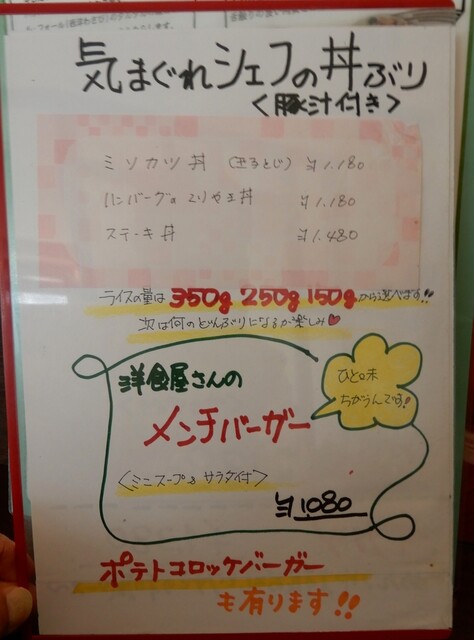 気まぐれシェフの丼ぶり
<豚汁付き>
ミソカツ丼 (玉子とじ) ¥1.180
ハンバーグのてりやき丼 ¥1.180
ステーキ丼 ¥1.480
ライスの量は 350g 250g 150g から選べます!!
次は何のどんぶりになるか楽しみ♥
洋食屋さんの
メンチバーガー
ひと味
ちがうんです!
<ミニスープ&サラダ付>
¥1.080
ポテトコロッケバーガー
も有ります!!